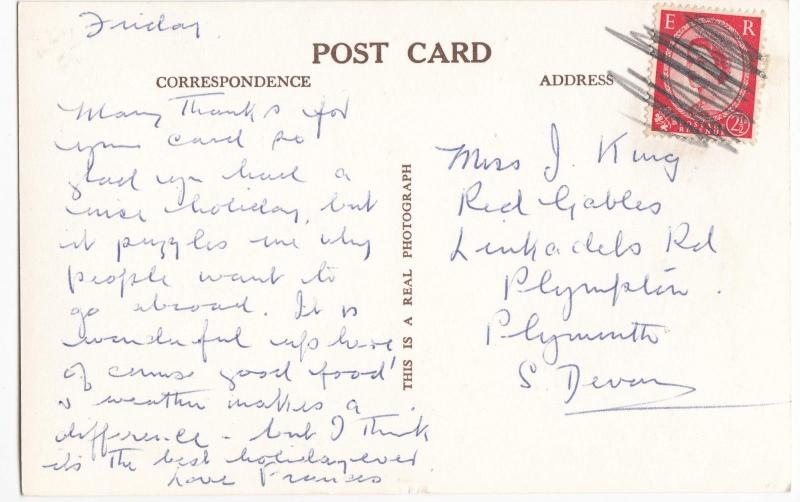 Friday
POST CARD
CORRESPONDENCE
Many Thanks for
your card so
glad you had a
nice holiday, but
it puzzles me why
people want to
go abroad. It is
wonderful up here
of course good food
& weather makes a
difference - but I Think
its The best holiday ever
Love Frances
THIS IS A REAL PHOTOGRAPH
ADDRESS
E R
POSTAGE
REVENUE
2½
Miss J. King
Red Gables
Rd
Plympton.
Plymouth
S. Devon